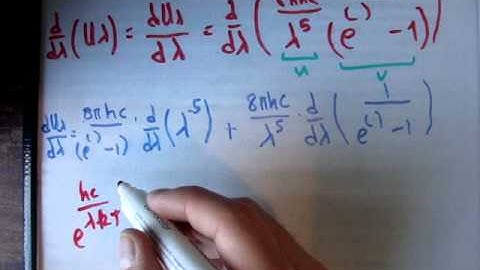 d/dλ (Uλ) = dUλ/dλ = d/dλ ( 8πhc/λ⁵ 1/(e^( ) - 1) )
u v
dUλ/dλ = 8πhc/(e^( ) - 1) · d/dλ (λ⁻⁵) + 8πhc/λ⁵ · d/dλ ( 1/(e^( ) - 1) )
e^(hc/λkT)